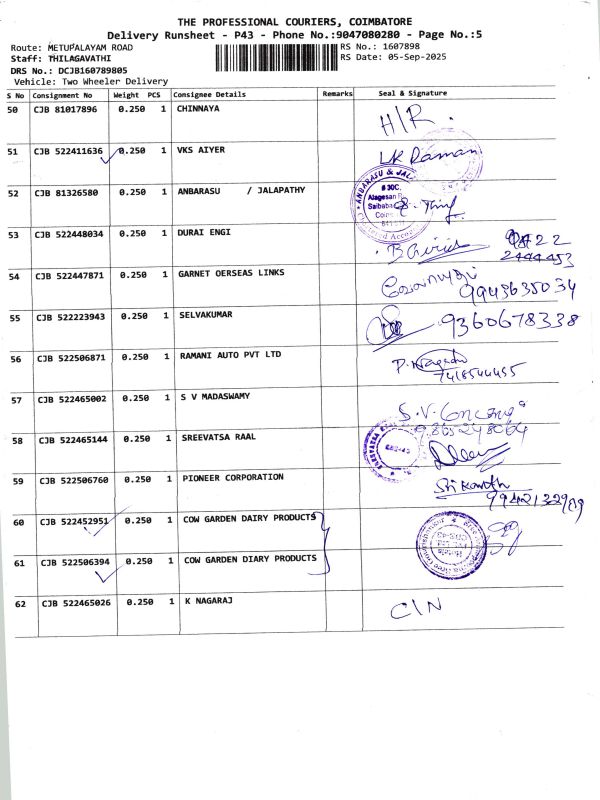 THE PROFESSIONAL COURIERS, COIMBATORE
Delivery Runsheet - P43 - Phone No.:9047080280 - Page No.:5
Route: METUPALAYAM ROAD RS No.: 1607898
Staff: THILAGAVATHI RS Date: 05-Sep-2025
DRS No.: DCJB160789805
Vehicle: Two Wheeler Delivery
S No Consignment No Weight PCS Consignee Details Remarks Seal & Signature
50 CJB 81017896 0.250 1 CHINNAYA H/R.
51 CJB 522411636 0.250 1 VKS AIYER LK Raman
52 CJB 81326580 0.250 1 ANBARASU / JALAPATHY
ANBARASU & JALA
# 30C,
Alagesan R
Saibaba
Coim
53 CJB 522448034 0.250 1 DURAI ENGI
2444453
54 CJB 522447871 0.250 1 GARNET OERSEAS LINKS
9943635034
55 CJB 522223943 0.250 1 SELVAKUMAR 9360678338
56 CJB 522506871 0.250 1 RAMANI AUTO PVT LTD
7418544455
57 CJB 522465002 0.250 1 S V MADASWAMY S.V.
9865248064
58 CJB 522465144 0.250 1 SREEVATSA RAAL
59 CJB 522506760 0.250 1 PIONEER CORPORATION Srikanth
60 CJB 522452951 0.250 1 COW GARDEN DAIRY PRODUCTS
61 CJB 522506394 0.250 1 COW GARDEN DIARY PRODUCTS
62 CJB 522465026 0.250 1 K NAGARAJ C/N